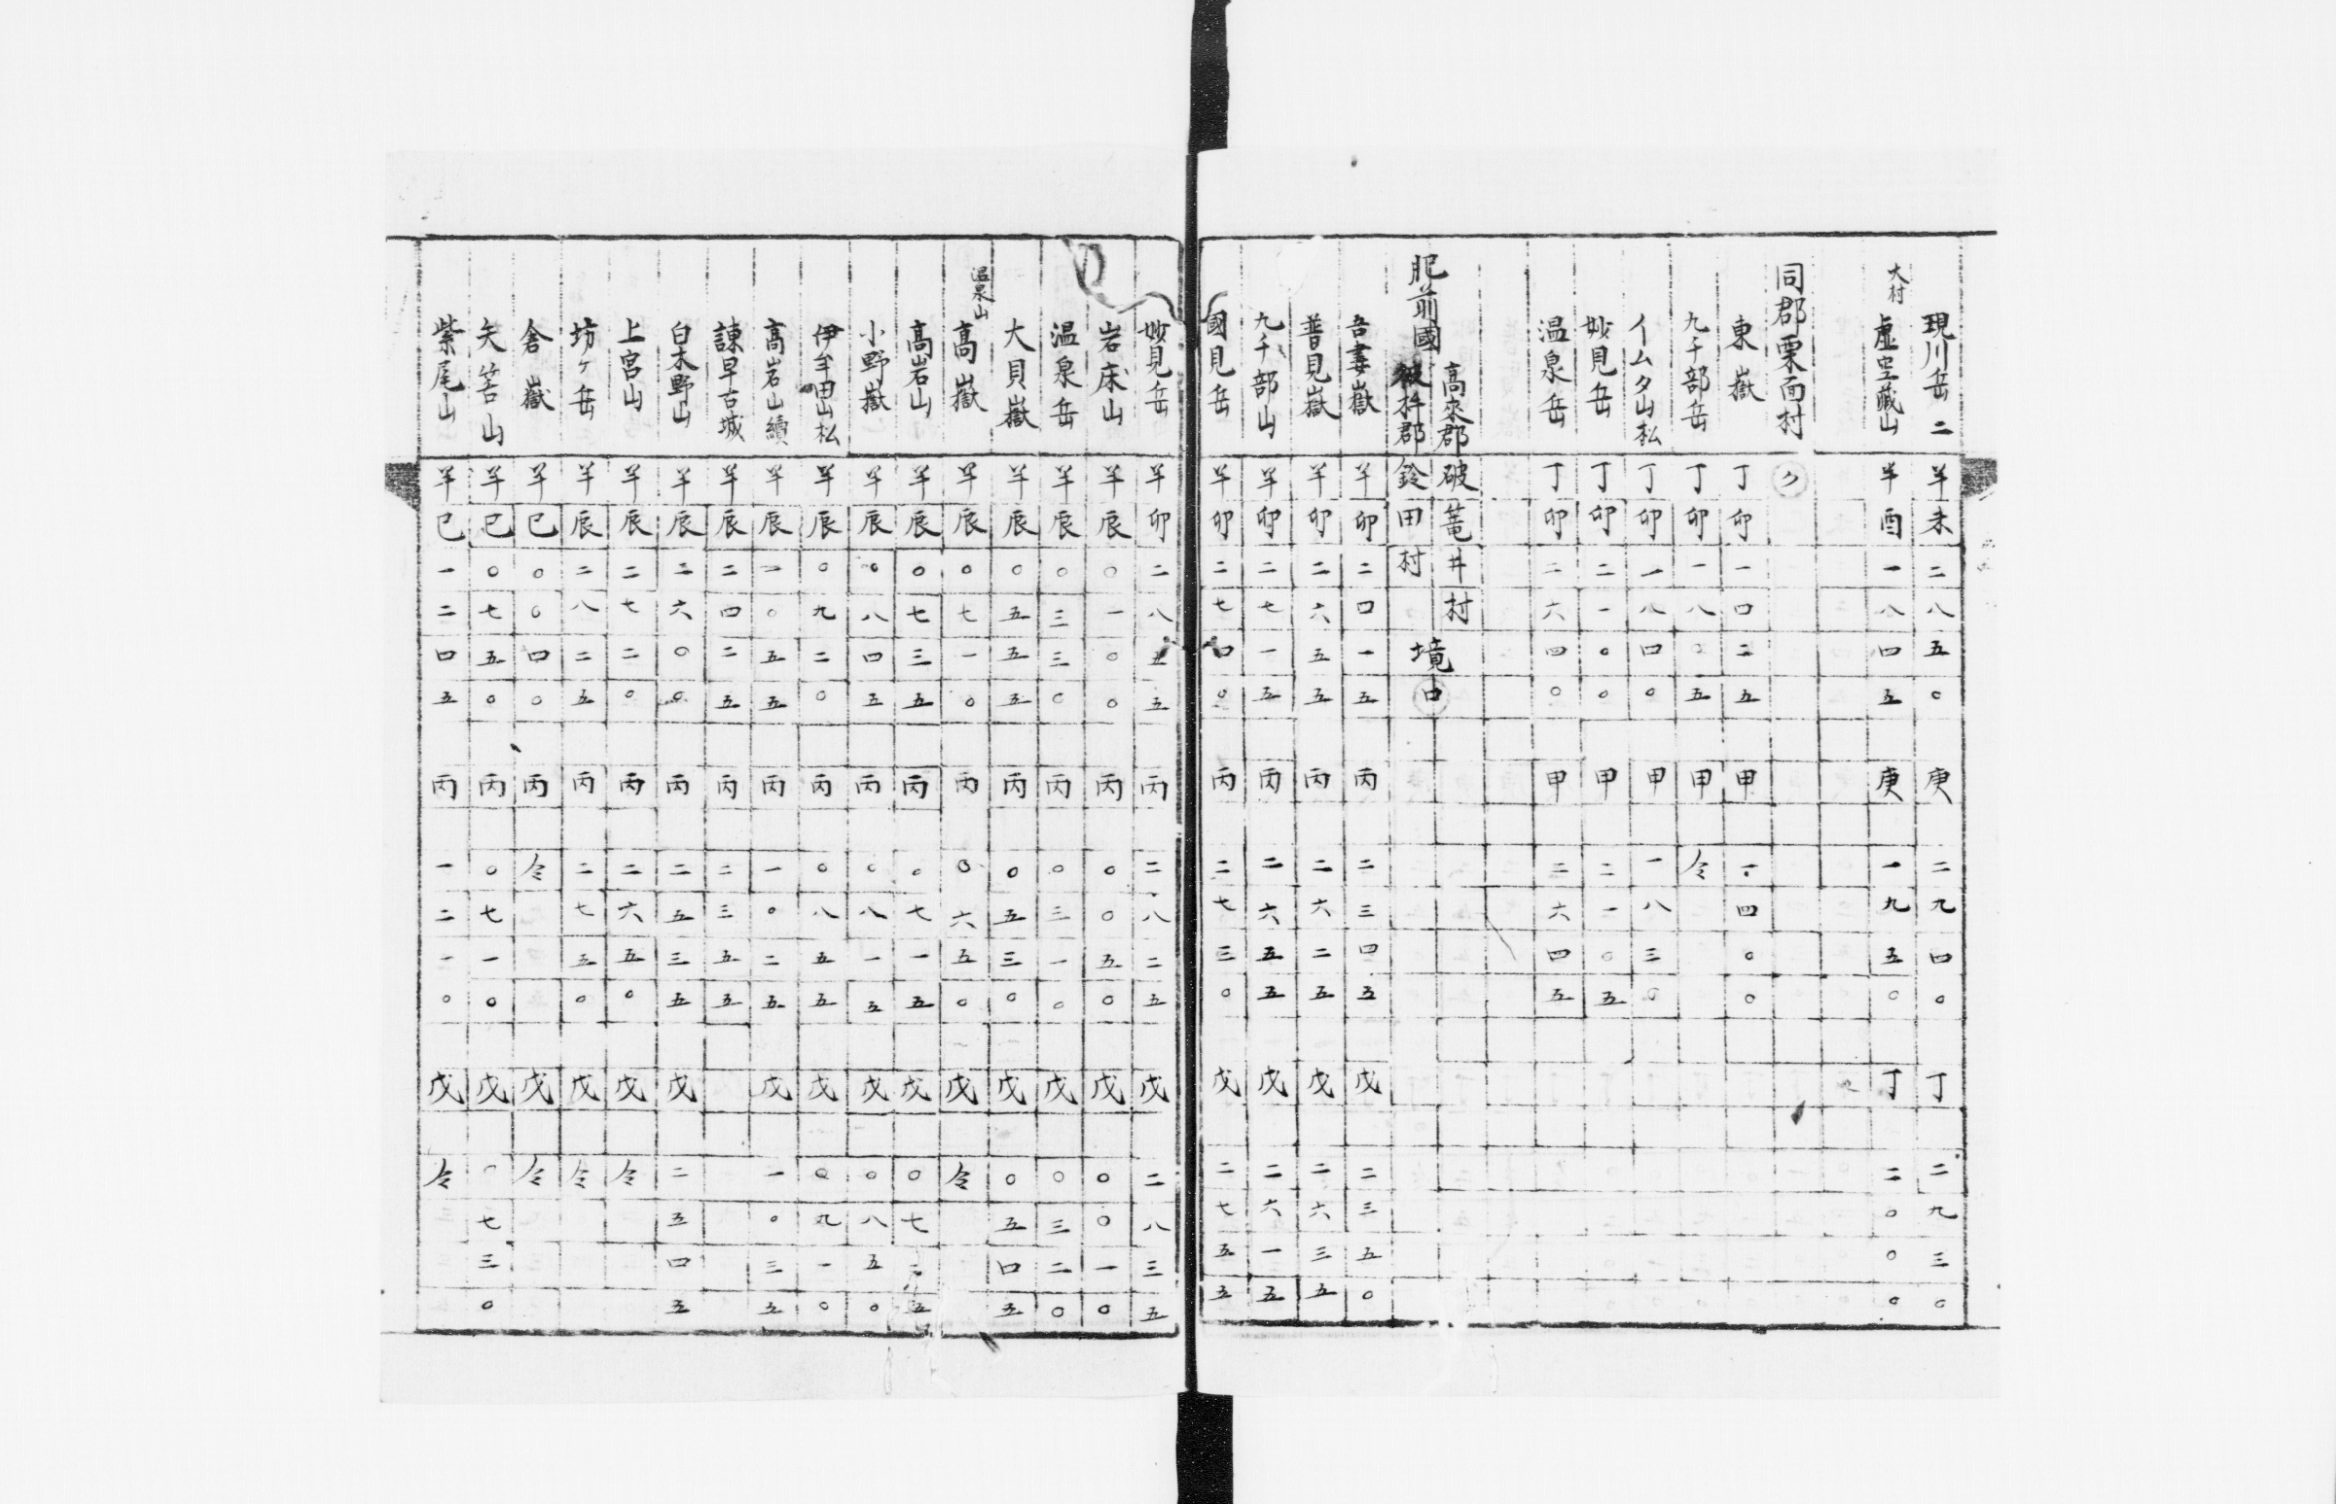 現川岳二 羊未二八五〇 庚二九四〇 丁二九三〇
大村
虚空蔵山 羊酉一八四五 庚一九五〇 丁二〇〇〇
同郡栗面村 ク
東嶽 丁卯一四二五 甲一四〇〇
九千部岳 丁卯一八〇五 甲仝
イムタ山松 丁卯一八四〇 甲一八三〇
妙見岳 丁卯二一〇〇 甲二一〇五
温泉岳 丁卯二六四〇 甲二六四五
肥前國
高来郡破篭井村
彼杵郡鈴田村
境 口
吾妻嶽 羊卯二四一五 丙二三四五 戊二三五〇
普見嶽 羊卯二六五五 丙二六二五 戊二六三五
九千部山 羊卯二七一五 丙二六五五 戊二六一五
國見岳 羊卯二七四〇 丙二七三〇 戊二七五五
妙見岳 羊卯二八五五 丙二八二五 戊二八三五
岩床山 羊辰〇一〇〇 丙〇〇五〇 戊〇〇一〇
温泉岳 羊辰〇三三〇 丙〇三一〇 戊〇三二〇
大貝嶽 羊辰〇五五五 丙〇五三〇 戊〇五四五
温泉山
高嶽 羊辰〇七一〇 丙〇六五〇 戊仝
高岩山 羊辰〇七三五 丙〇七一五 戊〇七二五
小野嶽 羊辰〇八四五 丙〇八一五 戊〇八五〇
伊牟田山松 羊辰〇九二〇 丙〇八五五 戊〇九一〇
高岩山續 羊辰一〇五五 丙一〇二五 戊一〇三五
諌早古城 羊辰二四二五 丙二三五五
白木野山 羊辰二六〇〇 丙二五三五 戊二五四五
上宮山 羊辰二七二〇 丙二六五〇 戊仝
坊ヶ岳 羊辰二八二五 丙二七五〇 戊仝
舎嶽 羊巳〇〇四〇 丙仝 戊仝
矢筈山 羊巳〇七五〇 丙〇七一〇 戊〇七三〇
紫尾山 羊巳一二四五 丙一二一〇 戊仝